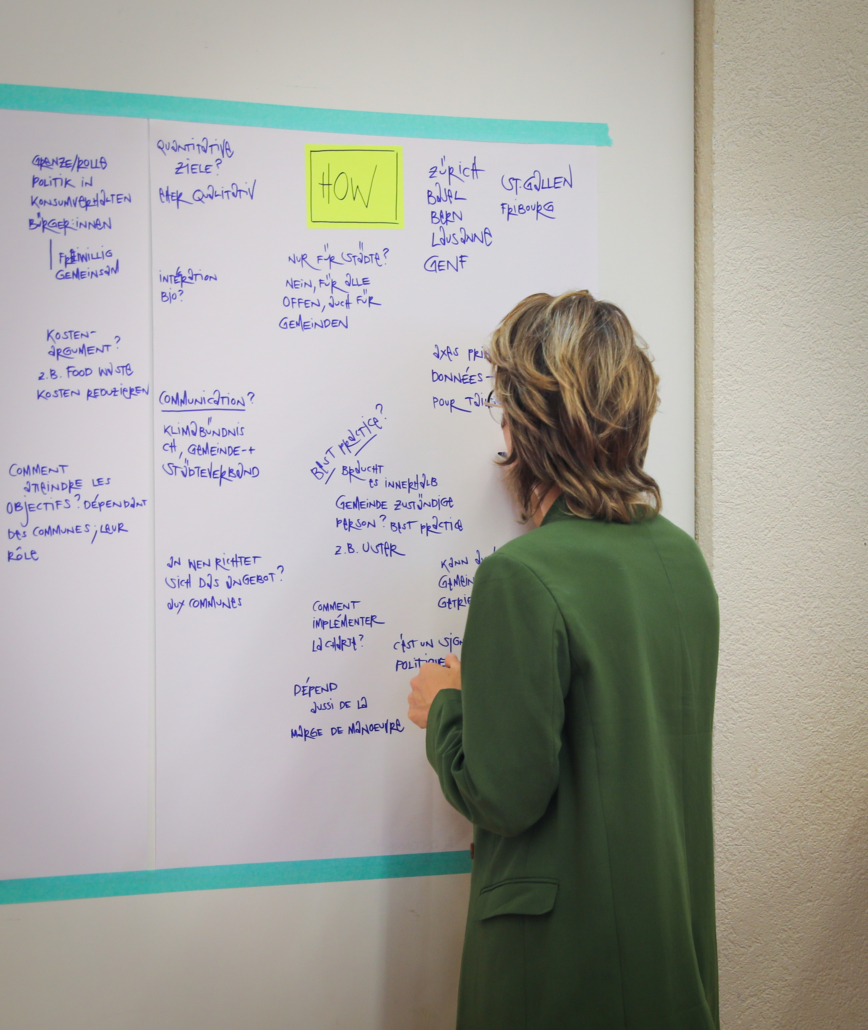 GRENZE/ROLLE
POLITIK IN
KONSUMVERHALTEN
BÜRGER:INNEN
FREIWILLIG
GEMEINSAM
KOSTEN-
ARGUMENT?
Z.B. FOOD WASTE
KOSTEN REDUZIEREN
COMMENT
ATTEINDRE LES
OBJECTIFS? DÉPENDANT
DES COMMUNES; LEUR
RÔLE
QUANTITATIVE
ZIELE?
EHER QUALITATIV
BIO?
COMMUNICATION?
KLIMABÜNDNIS
CH, GEMEINDE-+
STÄDTEVERBAND
AN WEN RICHTET
SICH DAS ANGEBOT?
AUX COMMUNES
HOW
NUR FÜR STÄDTE?
NEIN, FÜR ALLE
OFFEN, AUCH FÜR
GEMEINDEN
BEST PRACTICE?
BRAUCHT
ES INNERHALB
GEMEINDE ZUSTÄNDIGE
PERSON? BEST PRACTICE
Z.B. USTER
COMMENT
IMPLÉMENTER
LA CHARTE?
DÉPEND
AUSSI DE LA
MARGE DE MANOEUVRE
ZÜRICH
BASEL
BERN
LAUSANNE
GENF
ST. GALLEN
FRIBOURG
AXES
DONNÉES-
POUR
KANN
C'EST UN